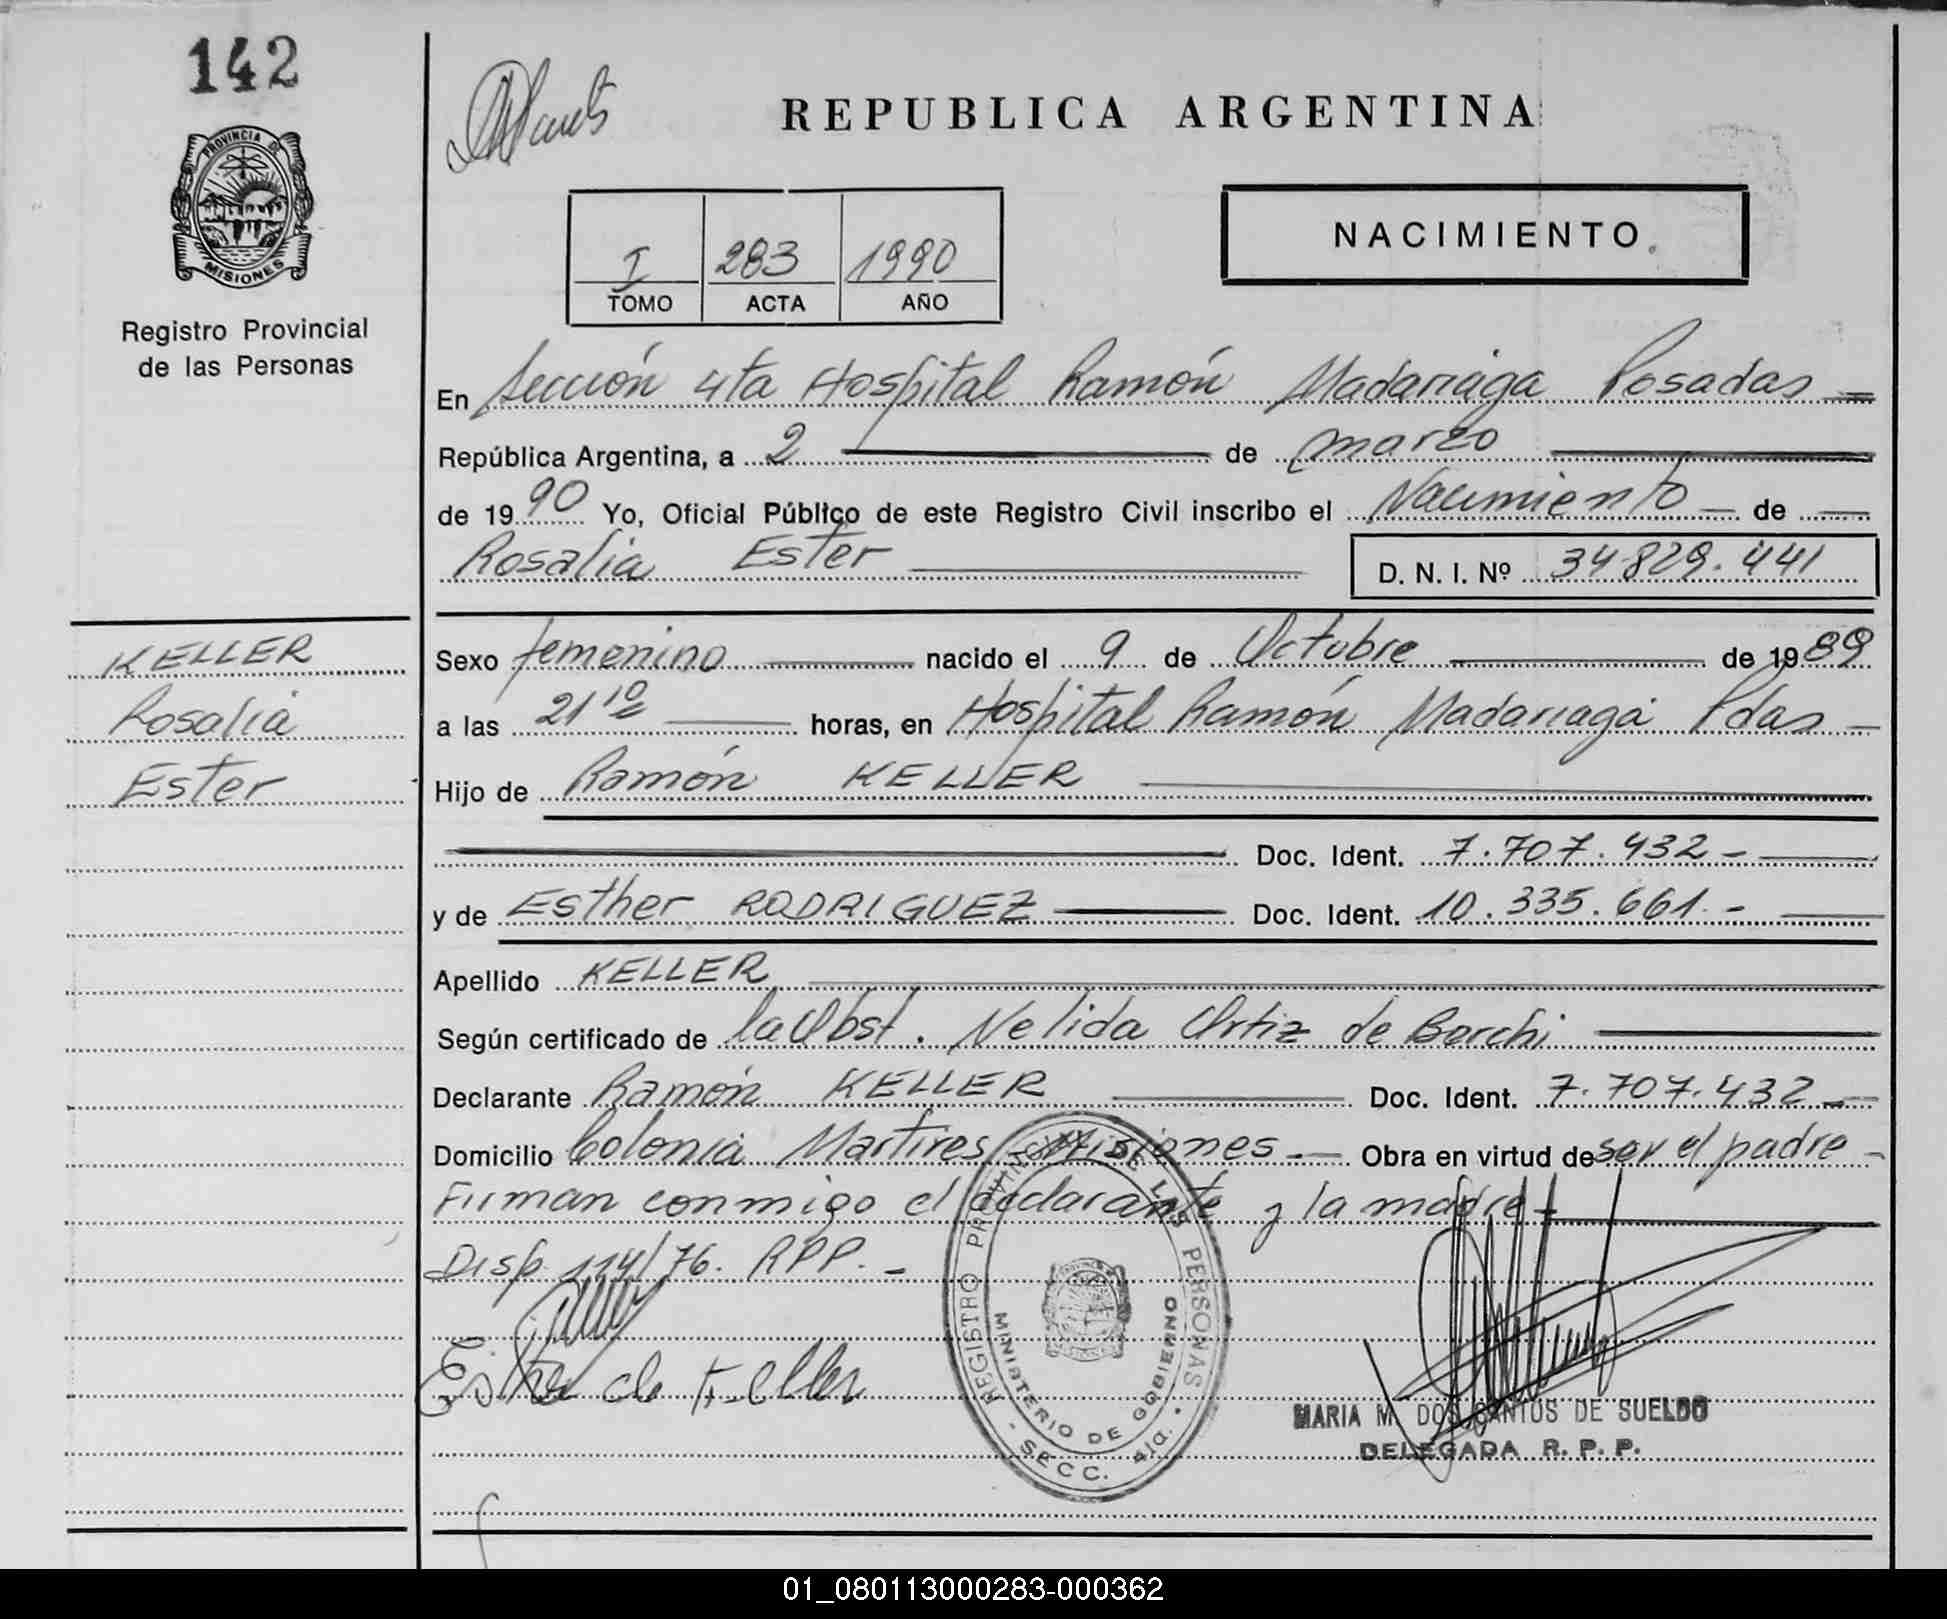 142
REPUBLICA ARGENTINA
PROVINCIA DE
MISIONES
Registro Provincial
de las Personas
I 283 1990
TOMO ACTA AÑO
NACIMIENTO
En Sección 4ta Hospital Ramón Madariaga Posadas
República Argentina, a 2 de marzo
de 1990 Yo, Oficial Público de este Registro Civil inscribo el Nacimiento de
Rosalia Ester D. N. I. Nº 34829.441
KELLER
Rosalia
Ester
Sexo femenino nacido el 9 de Octubre de 1989
a las 21 10 horas, en Hospital Ramón Madariaga Pdas
Hijo de Ramón KELLER
Doc. Ident. 7.707.432-
y de Esther RODRIGUEZ Doc. Ident. 10.335.661.-
Apellido KELLER
Según certificado de la Obst. Nelida Ortiz de Borchi
Declarante Ramón KELLER Doc. Ident. 7.707.432
Domicilio Colonia Martires Misiones Obra en virtud de ser el padre
Firman conmigo el declarante y la madre-
Disp. 114/76. RPP.-
Esther de Keller
REGISTRO PROVINCIAL DE LAS PERSONAS
MINISTERIO DE GOBIERNO
- SECC. 4ta. -
MARIA M. DOS SANTOS DE SUELDO
DELEGADA R. P. P.
01_080113000283-000362